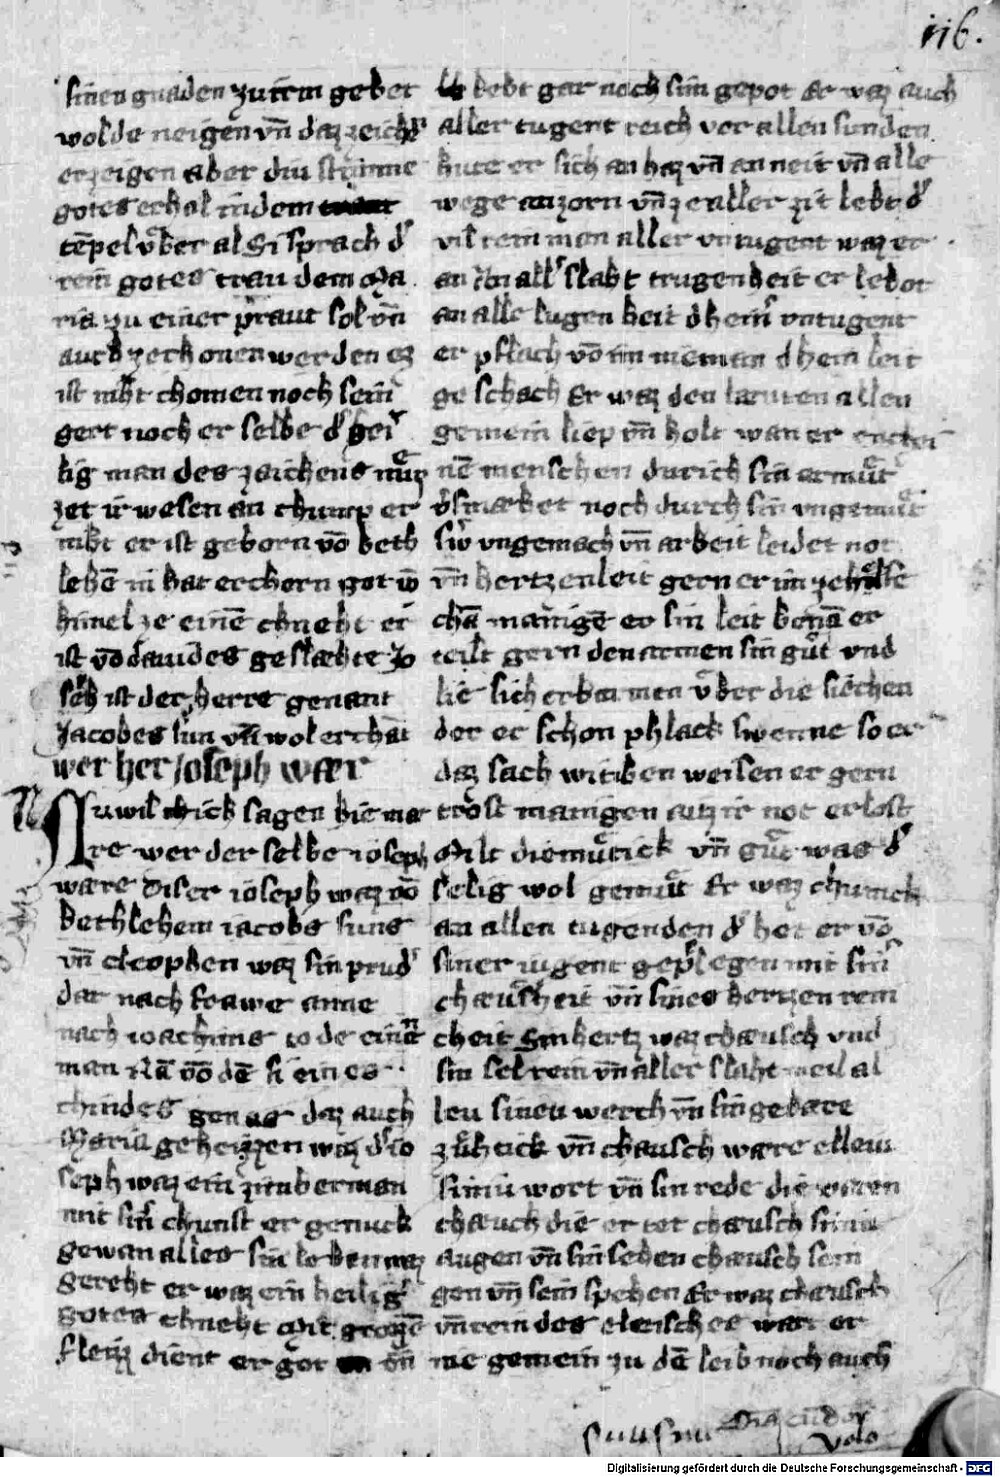 116.
sinen gnaden zu irm gebet
wolde neigen vn̄ daz zeichē
erzeigen aber diu stimme
gotes erhal in dem
tēpel vͤber al Si sprach dʾ
rein gotes trau dem Ma
ria zu einer praut sol vn̄
auch ze chonen werden ez
ist niht chomen noch sein
gert noch er selbe dʾ
lig man des zaichens
zet ir wesen an chump er
niht er ist geborn vō beth
lehē in hat erchorn got vō
himel ze einē chneht er
ist vō dauides geslæhte Jo
seph ist der herre genant
Jacobes sun vn̄ wol erchāt
wer her Joseph wær
Nu wil ich sagen hie mæ
re wer der selbe ioseph
wære Diser ioseph waz vō
bethlehem iacobs suns
vn̄ cleophen waz sin prudʾ
dar nach frawe anne
nach ioachims tode einē
man nā vō dē si eines
chindes genas daz auch
Maria geheizzen waz dʾ io
seph waz ein zimberman
mit sinʾ chunst er genuck
gewan alles sin leben waz
gereht er waz ein heiligʾ
gotes chneht Mit grozzē
fleizz dient er got vn̄
lebt gar noch sim gepot Er waz auch
aller tugent reich vor allen sunden
hute er sich an haz vn̄ an neit vn̄ alle
wege an zorn vn̄ ze aller zit lebt dʾ
vil rein man aller vntugent waz er
an allʾ slaht trugenheit er lebot
an alle lugenheit dheinʾ vntugent
er pflach vō im nieman dhein leit
geschach Er waz den læuten allen
gemein liep vn̄ holt wan er
nē menschen durich sin armuͤt
vʾsmæhet noch durch sin vngemuͤt
Swʾ vngemach vn̄ arbeit leidet not
vn̄ hertzenleit gern er im ze helfe
chā manigē er sin leit benā er
teilt gern den armen sin guͤt vnd
lie sich erbarmen vͤber die siechen
der er schon phlack swenne so er
daz sach witiben weisen er gern
trost manigen auz ir not erlost
Milt diemuͤtick vn̄ guͤt was dʾ
selig wol gemuͤt Er waz chunick
an allen tugenden dʾ het er vō
siner iugent gepflegen mit sinʾ
chæuscheit vn̄ sines hertzen rein
cheit Sin hertz waz chæusch vnd
sin sel rein vn̄ aller slaht meil al
leu sineu werch vn̄ sin gebære
zuͤhtick vn̄ chæusch wære elleu
siniu wort vn̄ sin rede die waren
chæuch die er tet chæusch siniu
augen vn̄ sin sehen chæusch sein
gen vn̄ sein spehen Er waz chæusch
vn̄ rein des fleisches wart er
nie gemein zu dē leib noch auch
Digitalisierung gefördert durch die Deutsche Forschungsgemeinschaft - DFG